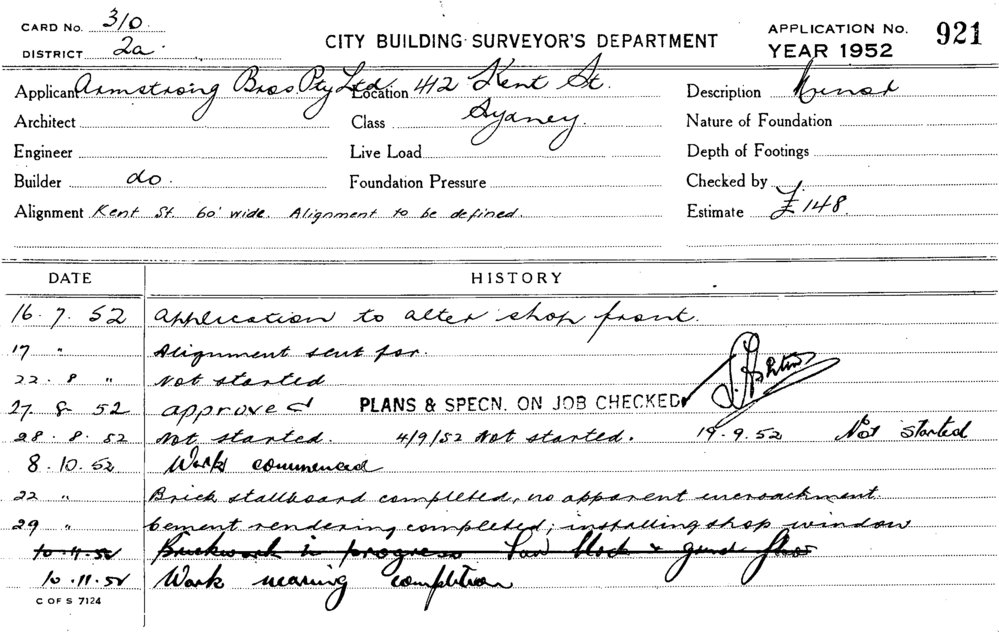 CARD No. 310.
DISTRICT 2a.
CITY BUILDING SURVEYOR'S DEPARTMENT
APPLICATION No. 921
YEAR 1952
Applicant Armstrong Bros. Pty Ltd. Location 412 Kent St. Description Minor
Architect Class Sydney. Nature of Foundation
Engineer Live Load Depth of Footings
Builder do. Foundation Pressure Checked by
Alignment Kent St. 60' wide. Alignment to be defined. Estimate £148.
DATE HISTORY
16.7.52 Application to alter shop front.
17 " Alignment sent for.
22.8 " Not started
27.8.52 approved PLANS & SPECN. ON JOB CHECKED
28.8.52 Not started. 4/9/52 Not started. 19.9.52 Not started
8.10.52 Work commenced
22 " Brick stallboard completed, no apparent encroachment.
29 " Cement rendering completed; installing shop window
10.11.52 Brickwork in progress block & grnd floor
10.11.52 Work nearing completion
C OF S 7124